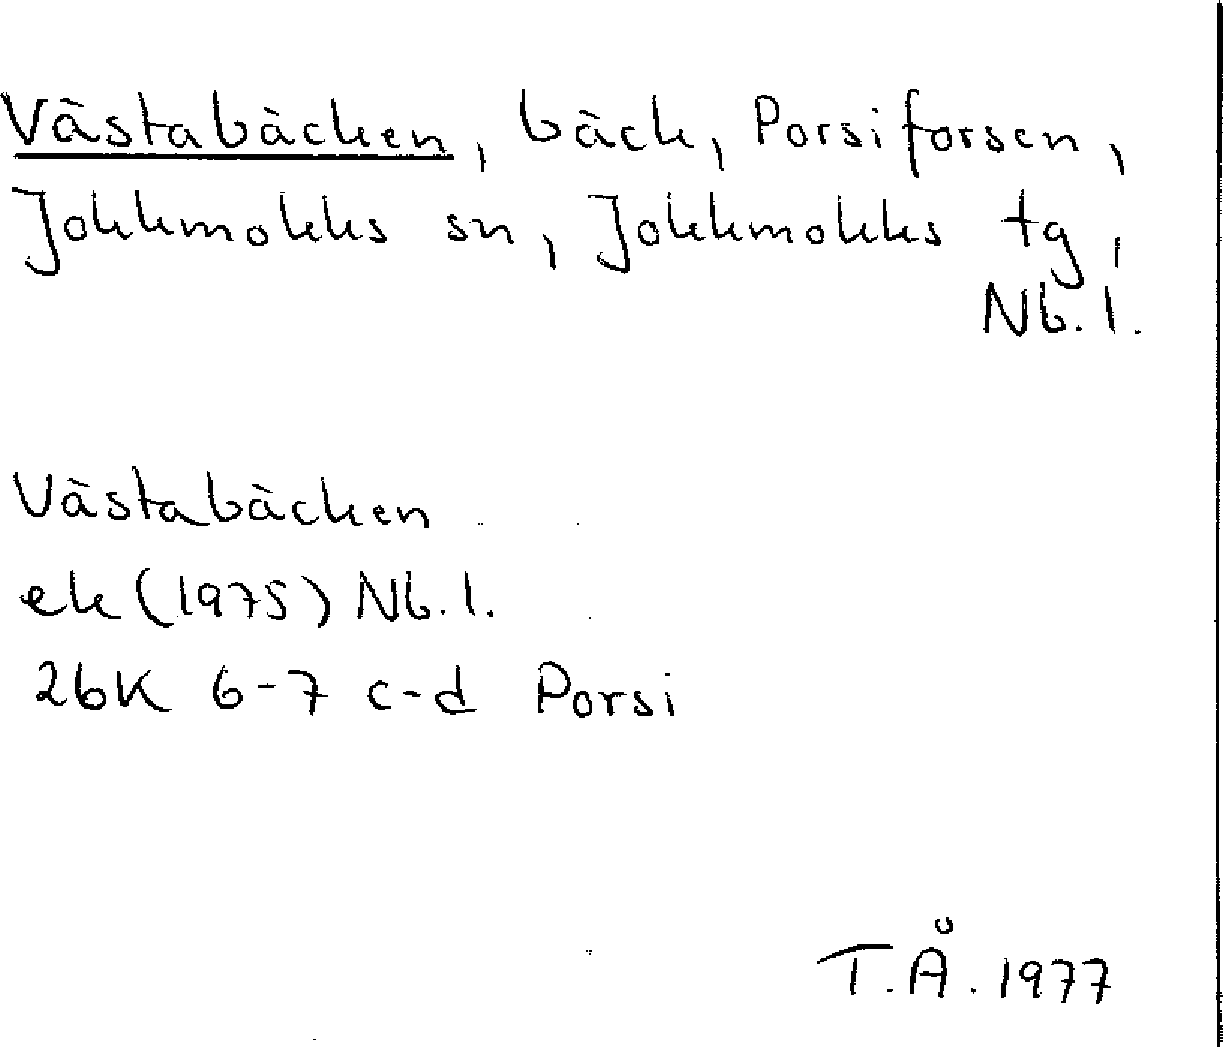 Västabäcken, bäck, Porsiforsen,
Jokkmokks sn, Jokkmokks tg,
Nb. l.
Västabäcken
ek (1975) Nb. l.
26K 6-7 c-d Porsi
T. Å. 1977